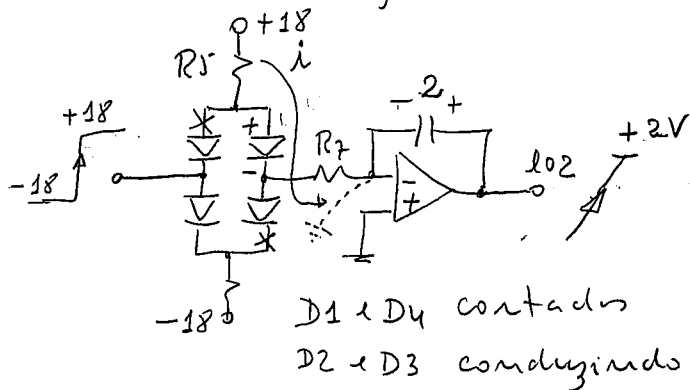 +18
R5 i
+18
-18
+ -
R7
- 2 +
- +
eo2
+2V
-18
D1 e D4 cortados
D2 e D3 conduzindo